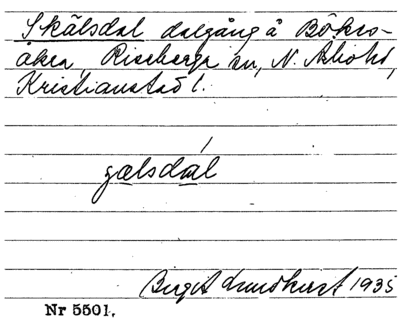 Skälsdal dalgång å Bökes-
åkra, Riseberga sn, N. Åsbo hd,
Kristianstad l.
gælsdál
Birgit Lundkvist 1935
Nr 5501.